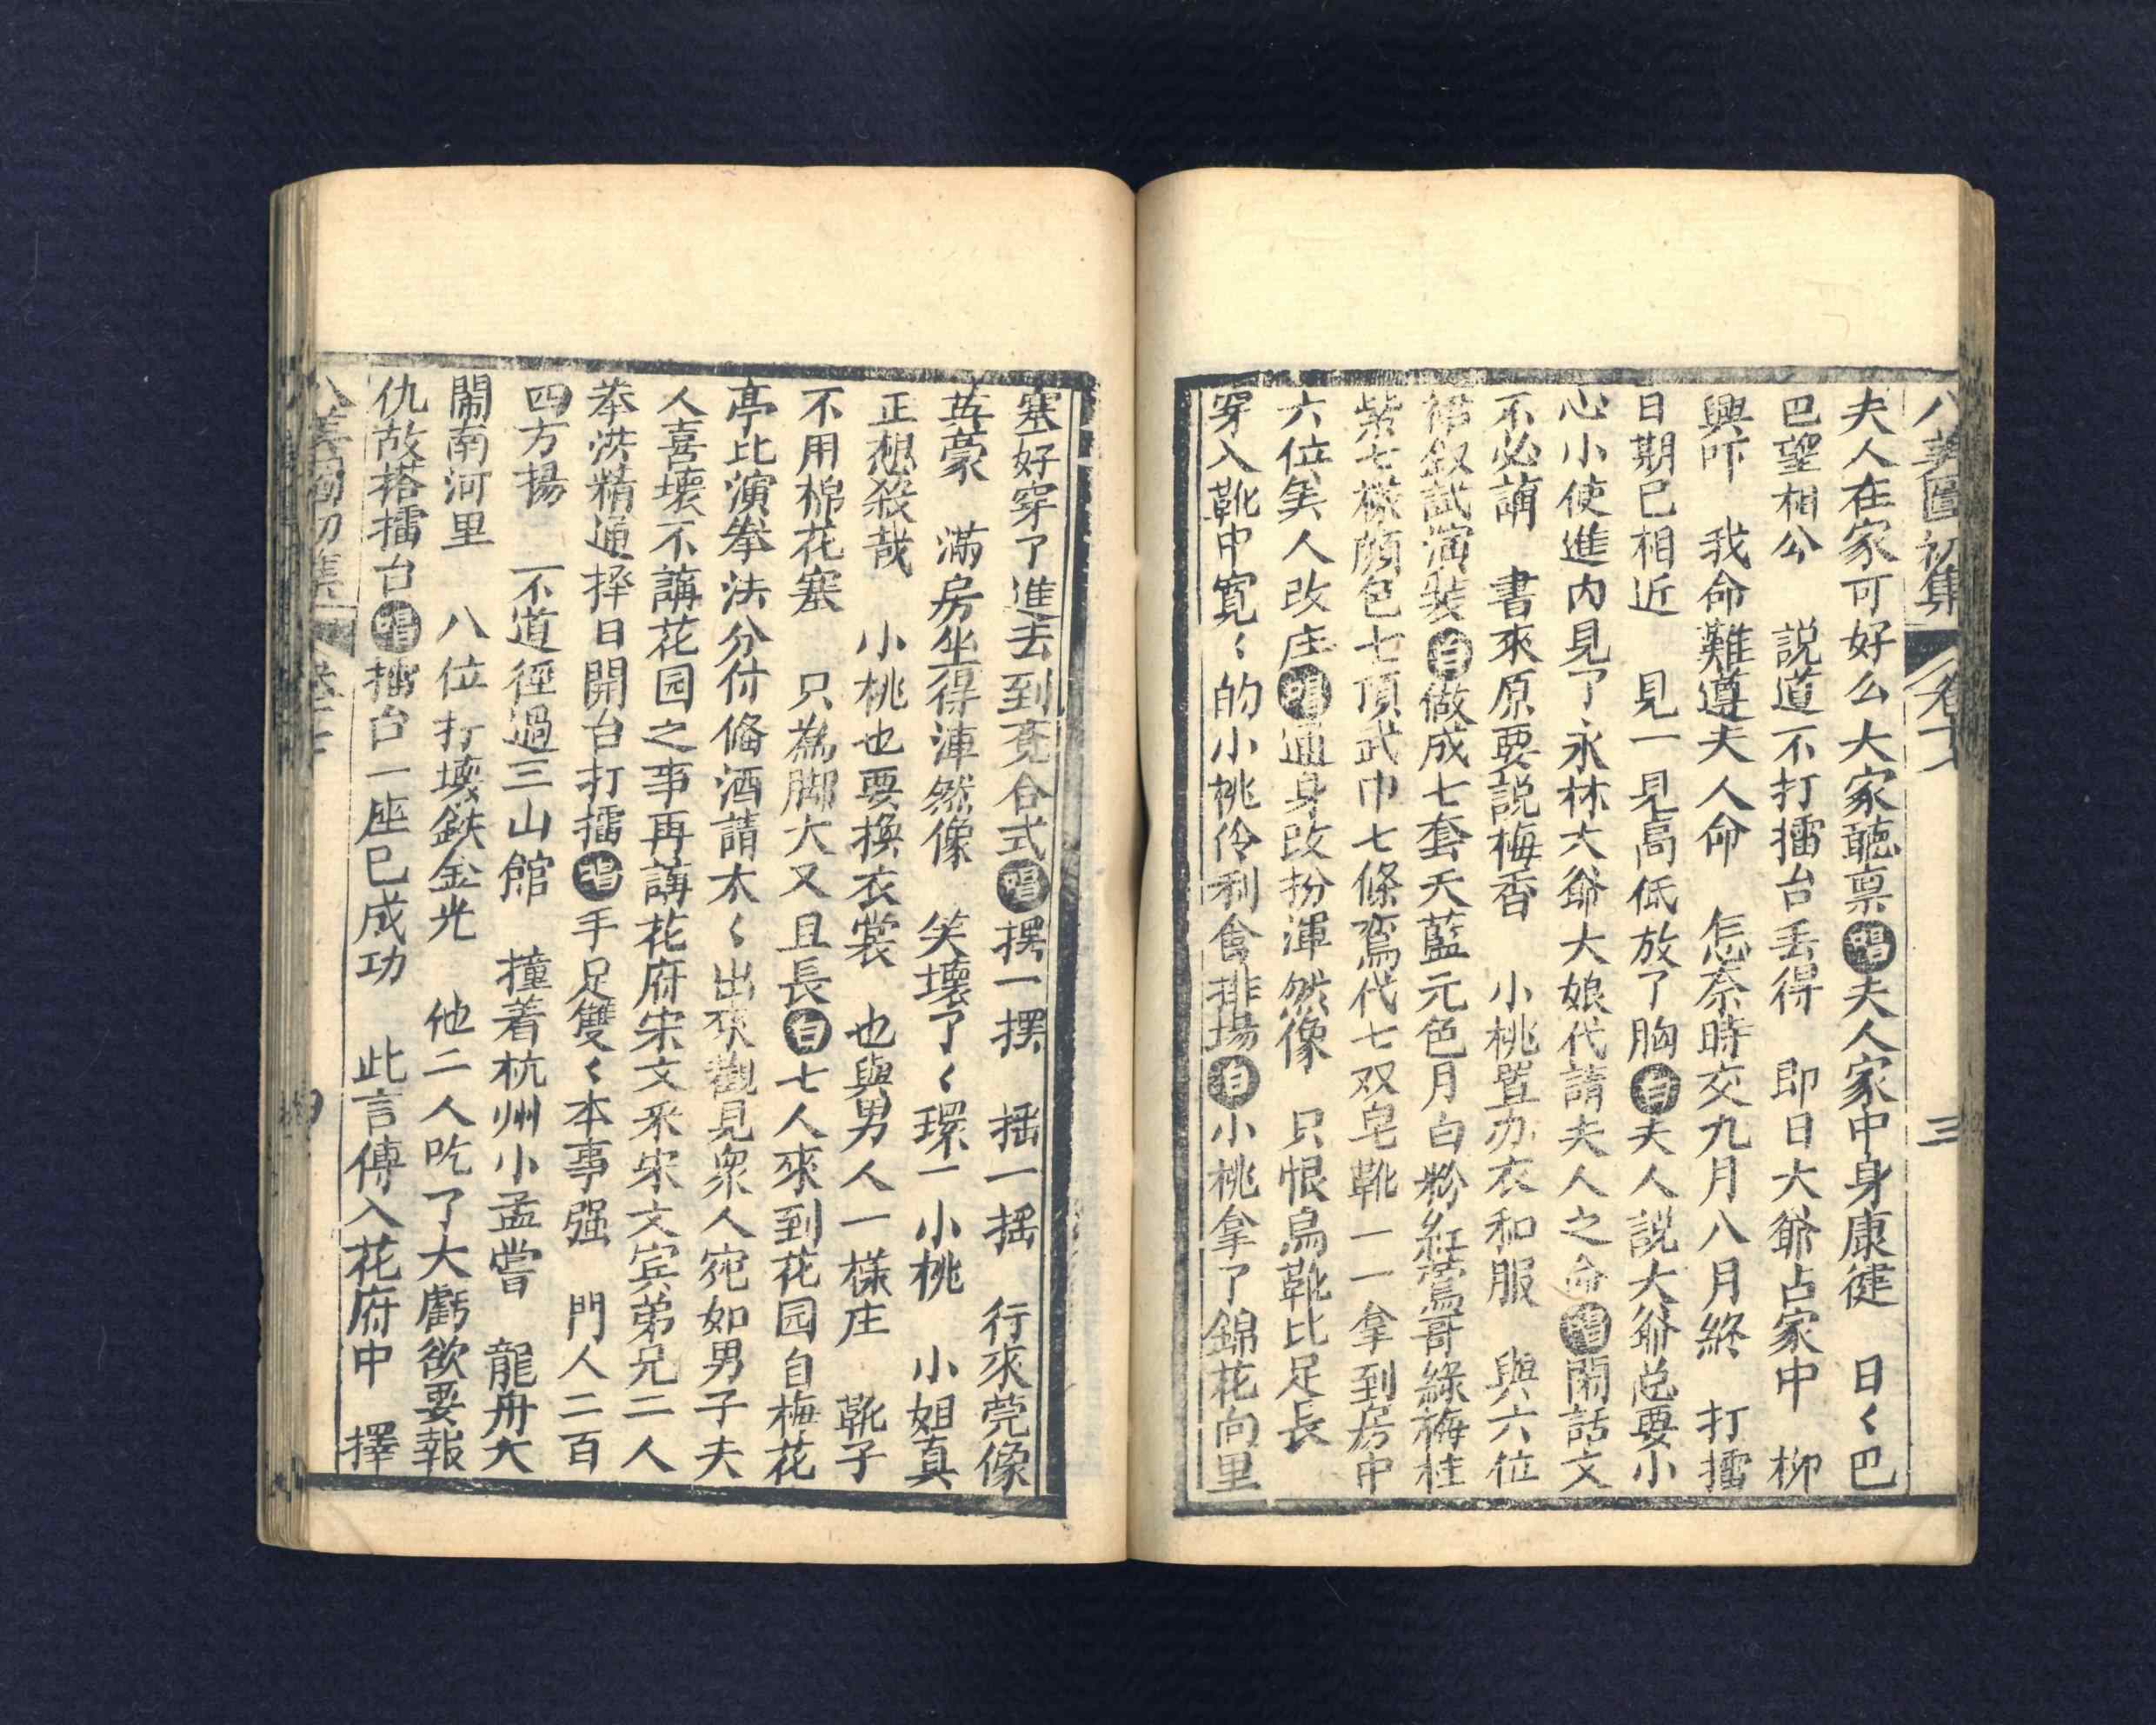 八美圖初集 卷六 三
夫人在家可好么大家聴禀唱夫人家中身康健 日〻巴
巴望相公 説道不打擂台丢得 即日大爺占家中 柳
興吓 我命難遵夫人命 怎奈時交九月八月終 打擂
日期已相近 見一見高低放了胸白夫人説大爺总要小
心小使進内見了永林大爺大娘代請夫人之命唱閑話文
不必講 書來原要説梅香 小桃置办衣和服 與六位
裙釵試演裝白做成七套天藍元色月白粉紅鶯哥綠梅桂
紫七樣顔色七頂武巾七條鸞代七双皂靴一一拿到房中
六位美人改庄唱通身改扮渾然像 只恨烏靴比足長
穿入靴中寬〻的小桃伶利會排場白小桃拿了錦花向里
塞好穿了進去到竟合式唱擺一擺 揺一揺 行來莞像
英豪 滿房坐得渾然像 笑壞了〻環一小桃 小姐真
正想殺哉 小桃也要換衣裳 也與男人一樣庄 靴子
不用棉花塞 只為脚大又且長白七人來到花园自梅花
亭比演拳法分付俻酒請太〻出來觀見衆人宛如男子夫
人喜壞不講花园之事再講花府宋文釆宋文宾弟兄二人
拳洪精通择日開台打擂唱手足雙〻本事强 門人二百
四方揚 不道徑過三山館 撞着杭州小孟嘗 龍舟大
鬧南河里 八位打壞鉄金光 他二人吃了大虧欲要報
仇故搭擂台唱擂台一座已成功 此言傳入花府中 擇
八美圖初集